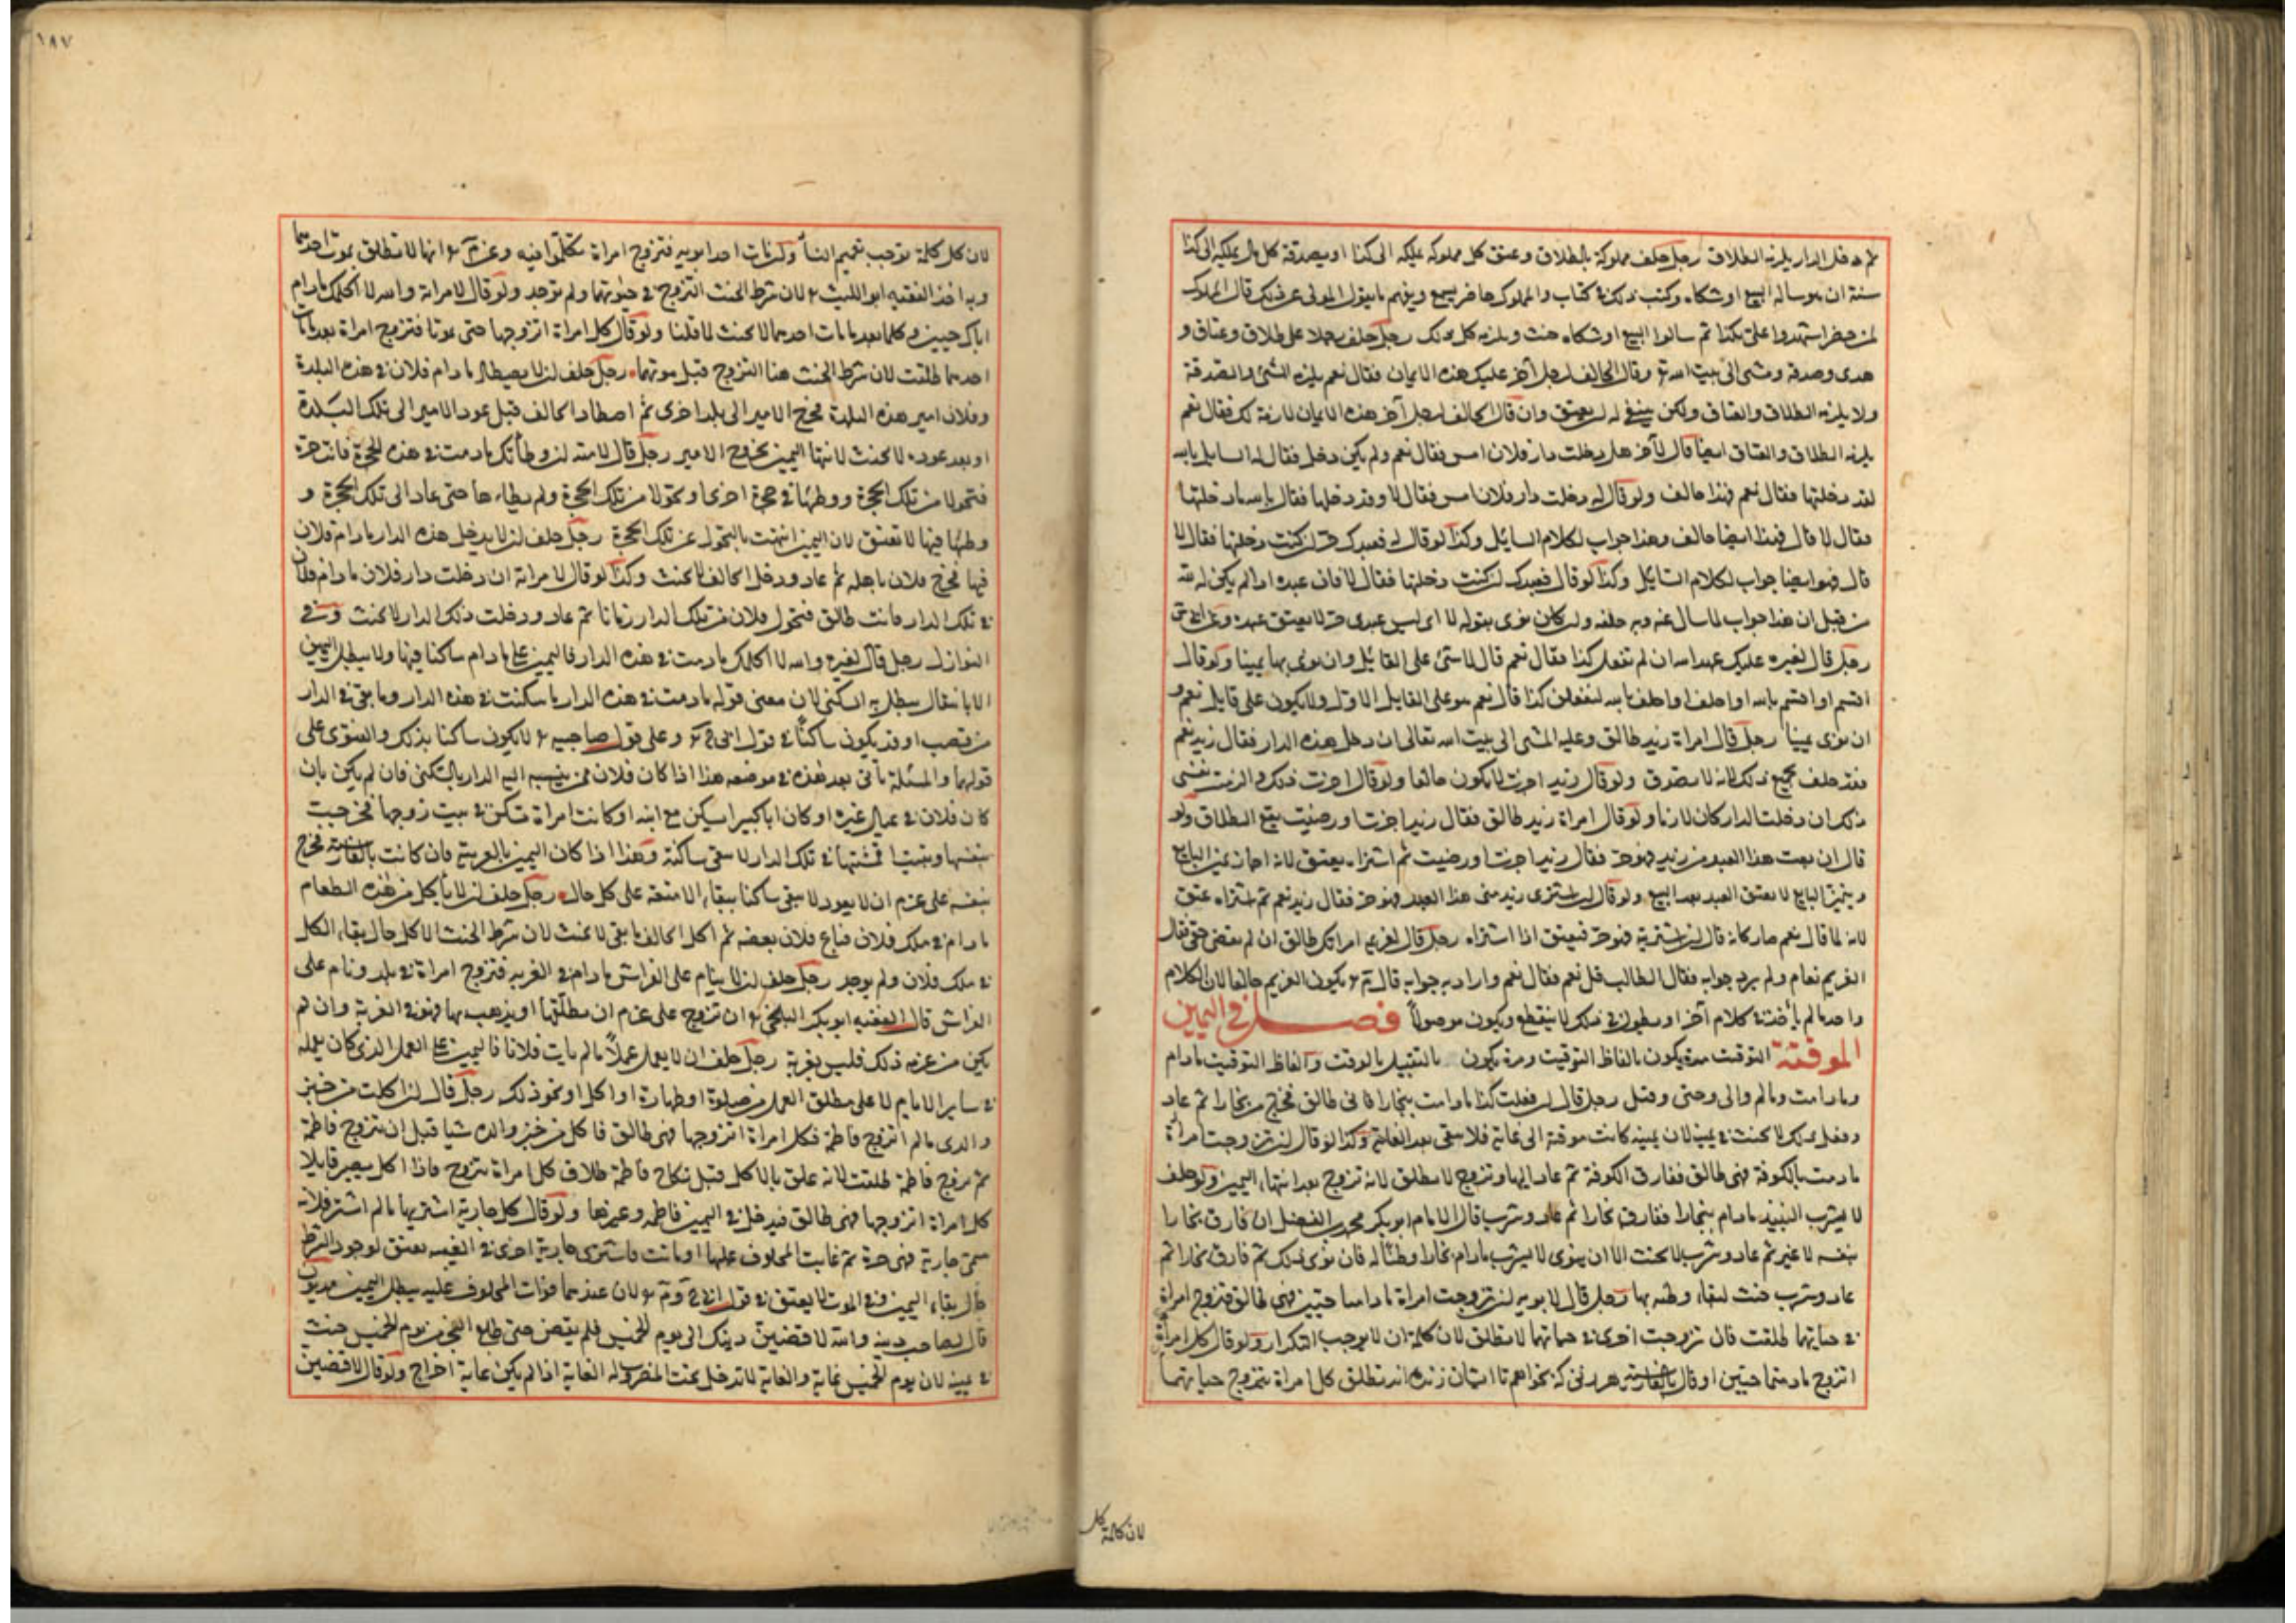 رجل حلف مملوكه بالطلاق وعتق كل مملوك يملكه الى كذا او بصدقة كل مال يملكه الى كذا
سنة ان هو ساله البيع او شكاه وكتب ذلك في كتاب والمملوك حاضر يسمع ويفهم ما يقول المولى عن ذلك قال المملوك
لمن حضر اشهدوا على بكذا ثم سالوا البيع او شكاه حنث ويلزمه كل ذلك رجل حلف رجلا على طلاق وعتاق و
هدى وصدقة ومشى الى بيت الله وقال الحالف لرجل آخر عليك هذه الايمان فقال نعم يلزمه المشى والصدقة
ولا يلزمه الطلاق والعتاق ولكن ينبغي له ان يعتق وان قال الحالف لرجل آخر هذه الايمان لازمة لك فقال نعم
يلزمه الطلاق والعتاق ايضا قال لآخر هل دخلت دار فلان امس فقال نعم ولم يكن دخل فقال له السايل بالله
لقد دخلتها فقال نعم فهذا حالف ولو قال له دخلت دار فلان امس فقال لا وقد دخلها فقال بالله ما دخلتها
فقال لا قال فهذا ايضا حالف وهذا جواب لكلام السايل وكذا لو قال له فعبدك حر ان كنت دخلتها فقال لا
قال فهو ايضا جواب لكلام السايل وكذا لو قال فعبدك ان كنت دخلتها فقال لا فان عبده اذا لم يكن له نية
من قبل ان هذا جواب لما سال عنه وبه حلفه وان كان نوى بقوله لا اى ليس عبدى حر لا يعتق عبده
رجل قال لغيره عليك عهد الله ان لم تفعل كذا فقال نعم قال لا شئ على القايل وان نوى بها يمينا ولو قال
اقسم او اقسم بالله او احلف او احلف بالله لتفعلن كذا قال نعم هو على القايل الاول ولا يكون على قايل نعم و
ان نوى يمينا رجل قال امراة زيد طالق وعليه المشى الى بيت الله تعالى ان دخل هذه الدار فقال زيد نعم
فقد حلف بجميع ذلك لانه لا يصدق ولو قال زيد اجزت لا يكون حالفا ولو قال اجزت ذلك والزمت نفسى
ذلك ان دخلت الدار كان لازما ولو قال امراة زيد طالق فقال زيد اجزت او رضيت يقع الطلاق ولو
قال ان بعت هذا العبد من زيد فهو حر فقال زيد اجزت او رضيت ثم اشتراه يعتق لانه اجاز يمين البايع
وبيمين البايع لا يعتق العبد بعد البيع ولو قال ان اشترى زيد منى هذا العبد فهو حر فقال زيد نعم ثم اشتراه عتق
لانه لما قال نعم صار كانه قال ان اشتريته فهو حر فيعتق اذا اشتراه رجل قال لغريمه امراتك طالق ان لم تقض حقى فقال
الغريم نعام ولم يرد جوابه فقال الطالب قل نعم فقال نعم واراد به جوابه قال يكون الغريم حالفا لان الكلام
واحد ما لم ياخذ في كلام آخر او يطول في ذلك لا ينقطع ويكون موصولا فصل في اليمين
الموقتة التوقت مرة يكون بالفاظ التوقيت ومرة يكون بالتقييد بالوقت والفاظ التوقيت ما دام
وما دامت وما لم والى وحتى وقبل رجل قال ان فعلت كذا ما دامت ببخارا فانى طالق فخرج من بخارا ثم عاد
وفعل ذلك لا يحنث في يمينه لان يمينه كانت موقتة الى غاية فلا تبقى بعد الغاية وكذا لو قال ان تزوجت امراة
ما دمت بالكوفة فهى طالق ففارق الكوفة ثم عاد اليها وتزوج لا تطلق لانه تزوج بعد انتهاء اليمين ولو حلف
لا يشرب النبيذ ما دام ببخارا ففارق بخارا ثم عاد وشرب قال الامام ابو بكر محمد بن الفضل ان فارق بخارا
بنفسه لا غير ثم عاد وشرب لا يحنث الا ان ينوى لا يشرب ما دام بخارا وطنا له فان نوى ذلك ثم فارق بخارا ثم
عاد وشرب حنث لبقاء وطنه بها رجل قال لابويه ان تزوجت امراة ما دامتا حيتين فهى طالق فتزوج امراة
في حياتهما طلقت فان تزوجت اخرى في حياتهما لا تطلق لان كلمة ان لا يوجب التكرار ولو قال كل امراة
اتزوج ما دمتما حيتين او قال بالفارسية هر زنى كه بخواهم تا ايشان زنده اند تطلق كل امراة يتزوج حياتهما
لان كلمة كل
١٨٧
لان كل كلمة توجب تعميم النسا وكذا مات احد ابويه فتزوج امراة تكلموا فيه وعن انها لا تطلق بموت احدهما
وبه اخذ الفقيه ابو الليث لان شرط الحنث التزوج في حيوتهما ولم توجد ولو قال لامراته والله لا اكلمك ما دام
ابواك حيين وكلما بعد ما مات احدهما لا يحنث لما قلنا ولو قال كل امراة اتزوجها حتى يموتا فتزوج امراة بعد ما مات
احدهما طلقت لان شرط الحنث هنا التزوج قبل موتهما رجل حلف ان لا يصطاد ما دام فلان في هذه البلدة
وفلان امير هذه البلدة فخرج الامير الى بلد اخرى ثم اصطاد الحالف قبل عود الامير الى تلك البلدة
او بعد عوده لا يحنث لانتهاء اليمين بخروج الامير رجل قال لامته ان وطأتك ما دمت في هذه الحجرة فانت حرة
فتحولا من تلك الحجرة ووطئها في حجرة اخرى او تحولا من تلك الحجرة ولم يطاءها حتى عاد الى تلك الحجرة و
وطئها فيها لا تعتق لان اليمين انتهت بالتحول عن تلك الحجرة رجل حلف ان لا يدخل هذه الدار ما دام فلان
فيها فخرج فلان باهله ثم عاد ودخل الحالف لا يحنث وكذا لو قال لامراته ان دخلت دار فلان ما دام فلان
في تلك الدار فانت طالق فتحول فلان من تلك الدار زمانا ثم عاد ودخلت ذلك الدار لا يحنث وفي
النوازل رجل قال لغيره والله لا اكلمك ما دمت في هذه الدار فاليمين على ما دام ساكنا فيها ولا يبطل اليمين
الا بانتقال يبطل به السكنى لان معنى قوله ما دمت في هذه الدار ما سكنت في هذه الدار وما بقى في الدار
من قصب او قد يكون ساكنا في قول وعلى قول صاحبيه لا يكون ساكنا بذلك والفتوى على
قولهما والمسئلة تاتى بعد هذه في موضعه هذا اذا كان فلان ممن ينسب اليه الدار بالسكنى فان لم يكن بان
كان فلان في عيال غيره او كان ابا كبيرا يسكن مع ابنه او كانت امراة تسكن في بيت زوجها فخرجت
بنفسها وبقيت اقمشتها في تلك الدار لا تبقى ساكنة وهذا اذا كان اليمين بالعربية فان كانت بالفارسية فخرج
بنفسه على عزم ان لا يعود لا يبقى ساكنا ببقاء الامتعة على كل حال رجل حلف ان لا ياكل من هذه الطعام
ما دام في ملك فلان فباع فلان بعضه ثم اكل الحالف ما بقى لا يحنث لان شرط الحنث الاكل حال بقاء الكل
في ملك فلان ولم يوجد رجل حلف ان لا ينام على الفراش ما دام في الغربة فتزوج امراة في بلد ونام على
الفراش قال الفقيه ابو بكر البلخى ان تزوج على عزم ان يطلقها او يذهب بها فهو في الغربة وان لم
يكن من عزمه ذلك فليس بغربة رجل حلف ان لا يعمل عملا ما لم يات فلانا فاليمين على العمل الذى كان يعمله
في ساير الايام لا على مطلق العمل من صلوة او طهارة او اكل او نحو ذلك رجل قال ان اكلت من خبز
والدى ما لم اتزوج فاطمة فكل امراة اتزوجها فهى طالق فاكل من خبز والده شيا قبل ان يتزوج فاطمة
ثم تزوج فاطمة طلقت لانه علق بالاكل قبل نكاح فاطمة طلاق كل امراة يتزوج فاذا اكل يصير قايلا
كل امراة اتزوجها فهى طالق فيدخل في اليمين فاطمة وغيرها ولو قال كل جارية اشتريها ما لم اشتر فلانه
سمى جارية فهى حرة ثم غابت المحلوف عليها او ماتت فاشترى جارية اخرى في الغيبة تعتق لوجود الشرط
حال بقاء اليمين وفي الموت لا يعتق في قول لان عندهما فوات المحلوف عليه يبطل اليمين مديون
قال لصاحب دينه والله لاقضين دينك الى يوم الخميس فلم يقض حتى طلع الفجر من يوم الخميس حنث
في يمينه لان يوم الخميس غاية والغاية لا تدخل تحت المضروب له الغاية اذا لم يكن غاية اخراج ولو قال لاقضين